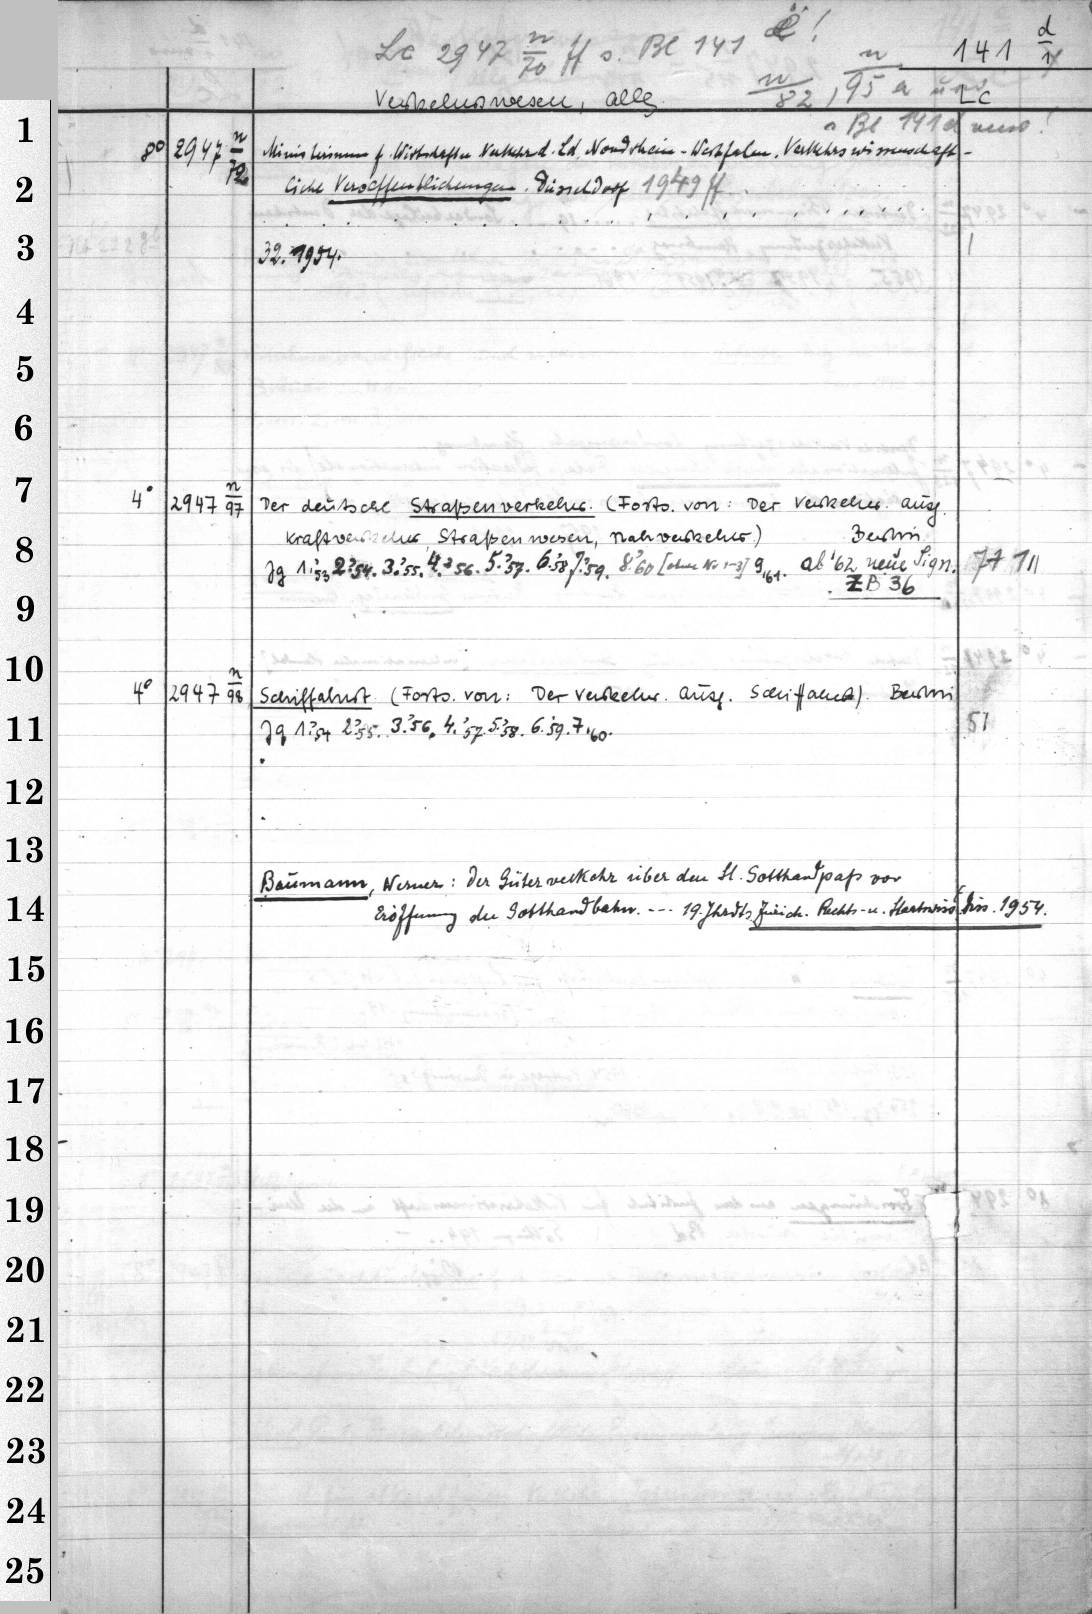 Lc 2947 n/70 ff s. Bl 141 !
141 d/1
n/82, n/95 a und
Verkehrswesen, allg. Lc
s Bl 141 d verso!
1
8° 2947 n/72 Ministerium f. Wirtschaft u. Verkehr d. Ld. Nordrhein-Westfalen. Verkehrswissenschaft-
2
liche Veröffentlichungen. Düsseldorf 1949 ff.
3
32. 1954. 1
4
5
6
7
4° 2947 n/97 Der deutsche Straßenverkehr. (Forts. von: Der Verkehr. Ausg.
8
Kraftverkehr, Straßenwesen, Nahverkehr.) Berlin
Jg 1.'53 2.'54. 3.'55. 4.'56. 5.'57. 6.'58 7.'59. 8.'60 [ohne Nr 1-3] 9,'61. ab '62 neue Sign.
ZB 36
9
10
4° 2947 n/98 Schiffahrt. (Forts. von: Der Verkehr. Ausg. Schiffahrt). Berlin
11
Jg 1.'54 2.'55. 3.'56. 4.'57 5.'58. 6.'59. 7,'60. 51
12
13
Baumann, Werner: Der Güterverkehr über den St. Gotthardpaß vor
14
Eröffnung der Gotthardbahn. --- 19. Jhrdts Zürich. Rechts- u. Staatswiss. Diss. 1954.
15
16
17
18
19
20
21
22
23
24
25